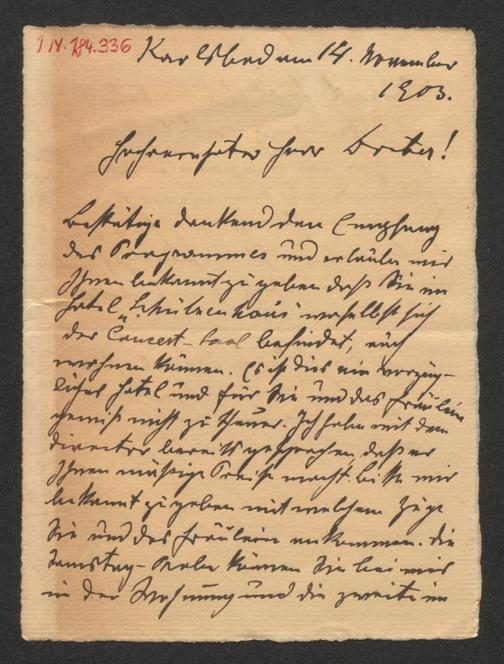 I N. 184.336
Karlsbad am 14. November
1903.
Hochverehrter Herr Doctor!
Bestätige dankend den Empfang
des Programmes und erlaube mir
Ihnen bekannt zu geben daß Sie im
Hotel „Schützenhaus" woselbst sich
der Concert-Saal befindet, auch
wohnen können. Es ist dies ein vorzüg-
liches Hotel und für Sie und das Fräulein
gewiß nicht zu theuer. Ich habe mit dem
Director bereits gesprochen, daß er
Ihnen mäßige Preise macht. Bitte mir
bekannt zu geben mit welchem Zuge
Sie und das Fräulein ankommen. Die
Samstag-Probe können Sie bei mir
in der Wohnung und die zweite im